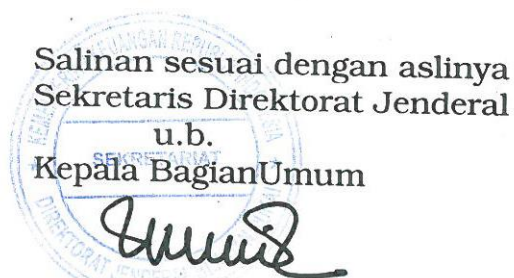 Salinan sesuai dengan aslinya
Sekretaris Direktorat Jenderal
u.b.
Kepala BagianUmum
SEKRETARIAT
DIREKTORAT JENDERAL